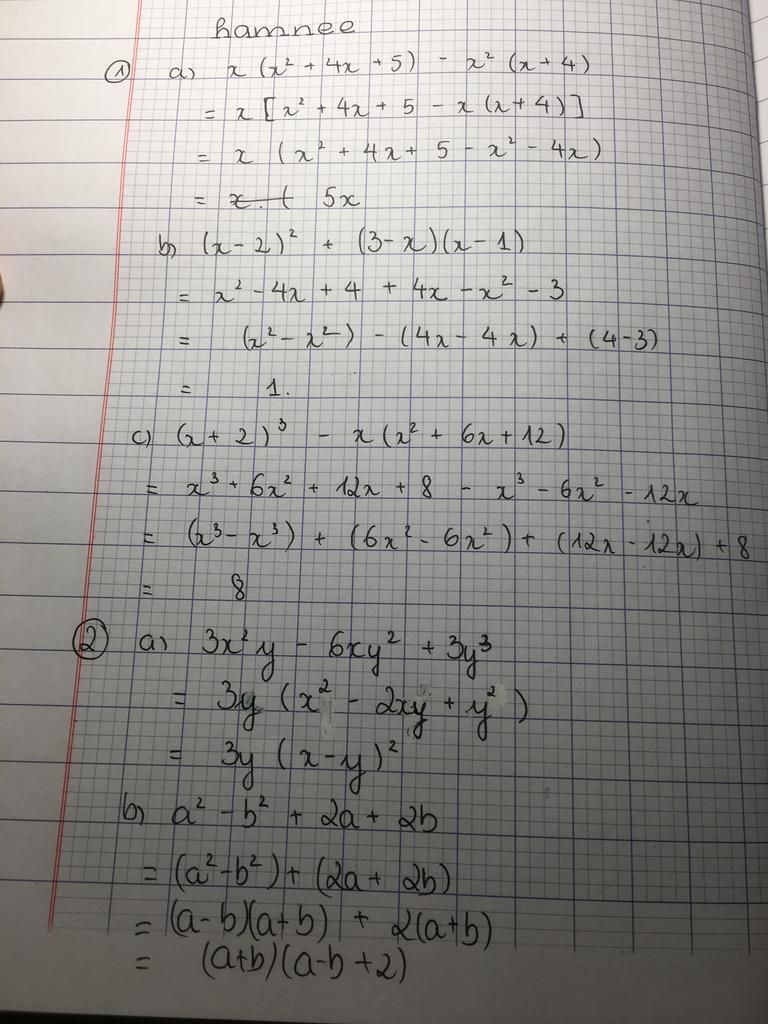 hamnee
① a) x (x² + 4x + 5) - x² (x + 4)
= x [x² + 4x + 5 - x (x + 4)]
= x (x² + 4x + 5 - x² - 4x)
= x. ( 5x
b) (x - 2)² + (3 - x)(x - 1)
= x² - 4x + 4 + 4x - x² - 3
= (x² - x²) - (4x - 4x) + (4 - 3)
= 1.
c) (x + 2)³ - x (x² + 6x + 12)
= x³ + 6x² + 12x + 8 - x³ - 6x² - 12x
= (x³ - x³) + (6x² - 6x²) + (12x - 12x) + 8
= 8
② a) 3x²y - 6xy² + 3y³
= 3y (x² - 2xy + y²)
= 3y (x - y)²
b) a² - b² + 2a + 2b
= (a² - b²) + (2a + 2b)
= (a - b)(a + b) + 2(a + b)
= (a + b)(a - b + 2)